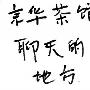 京华茶馆
聊天的
地方